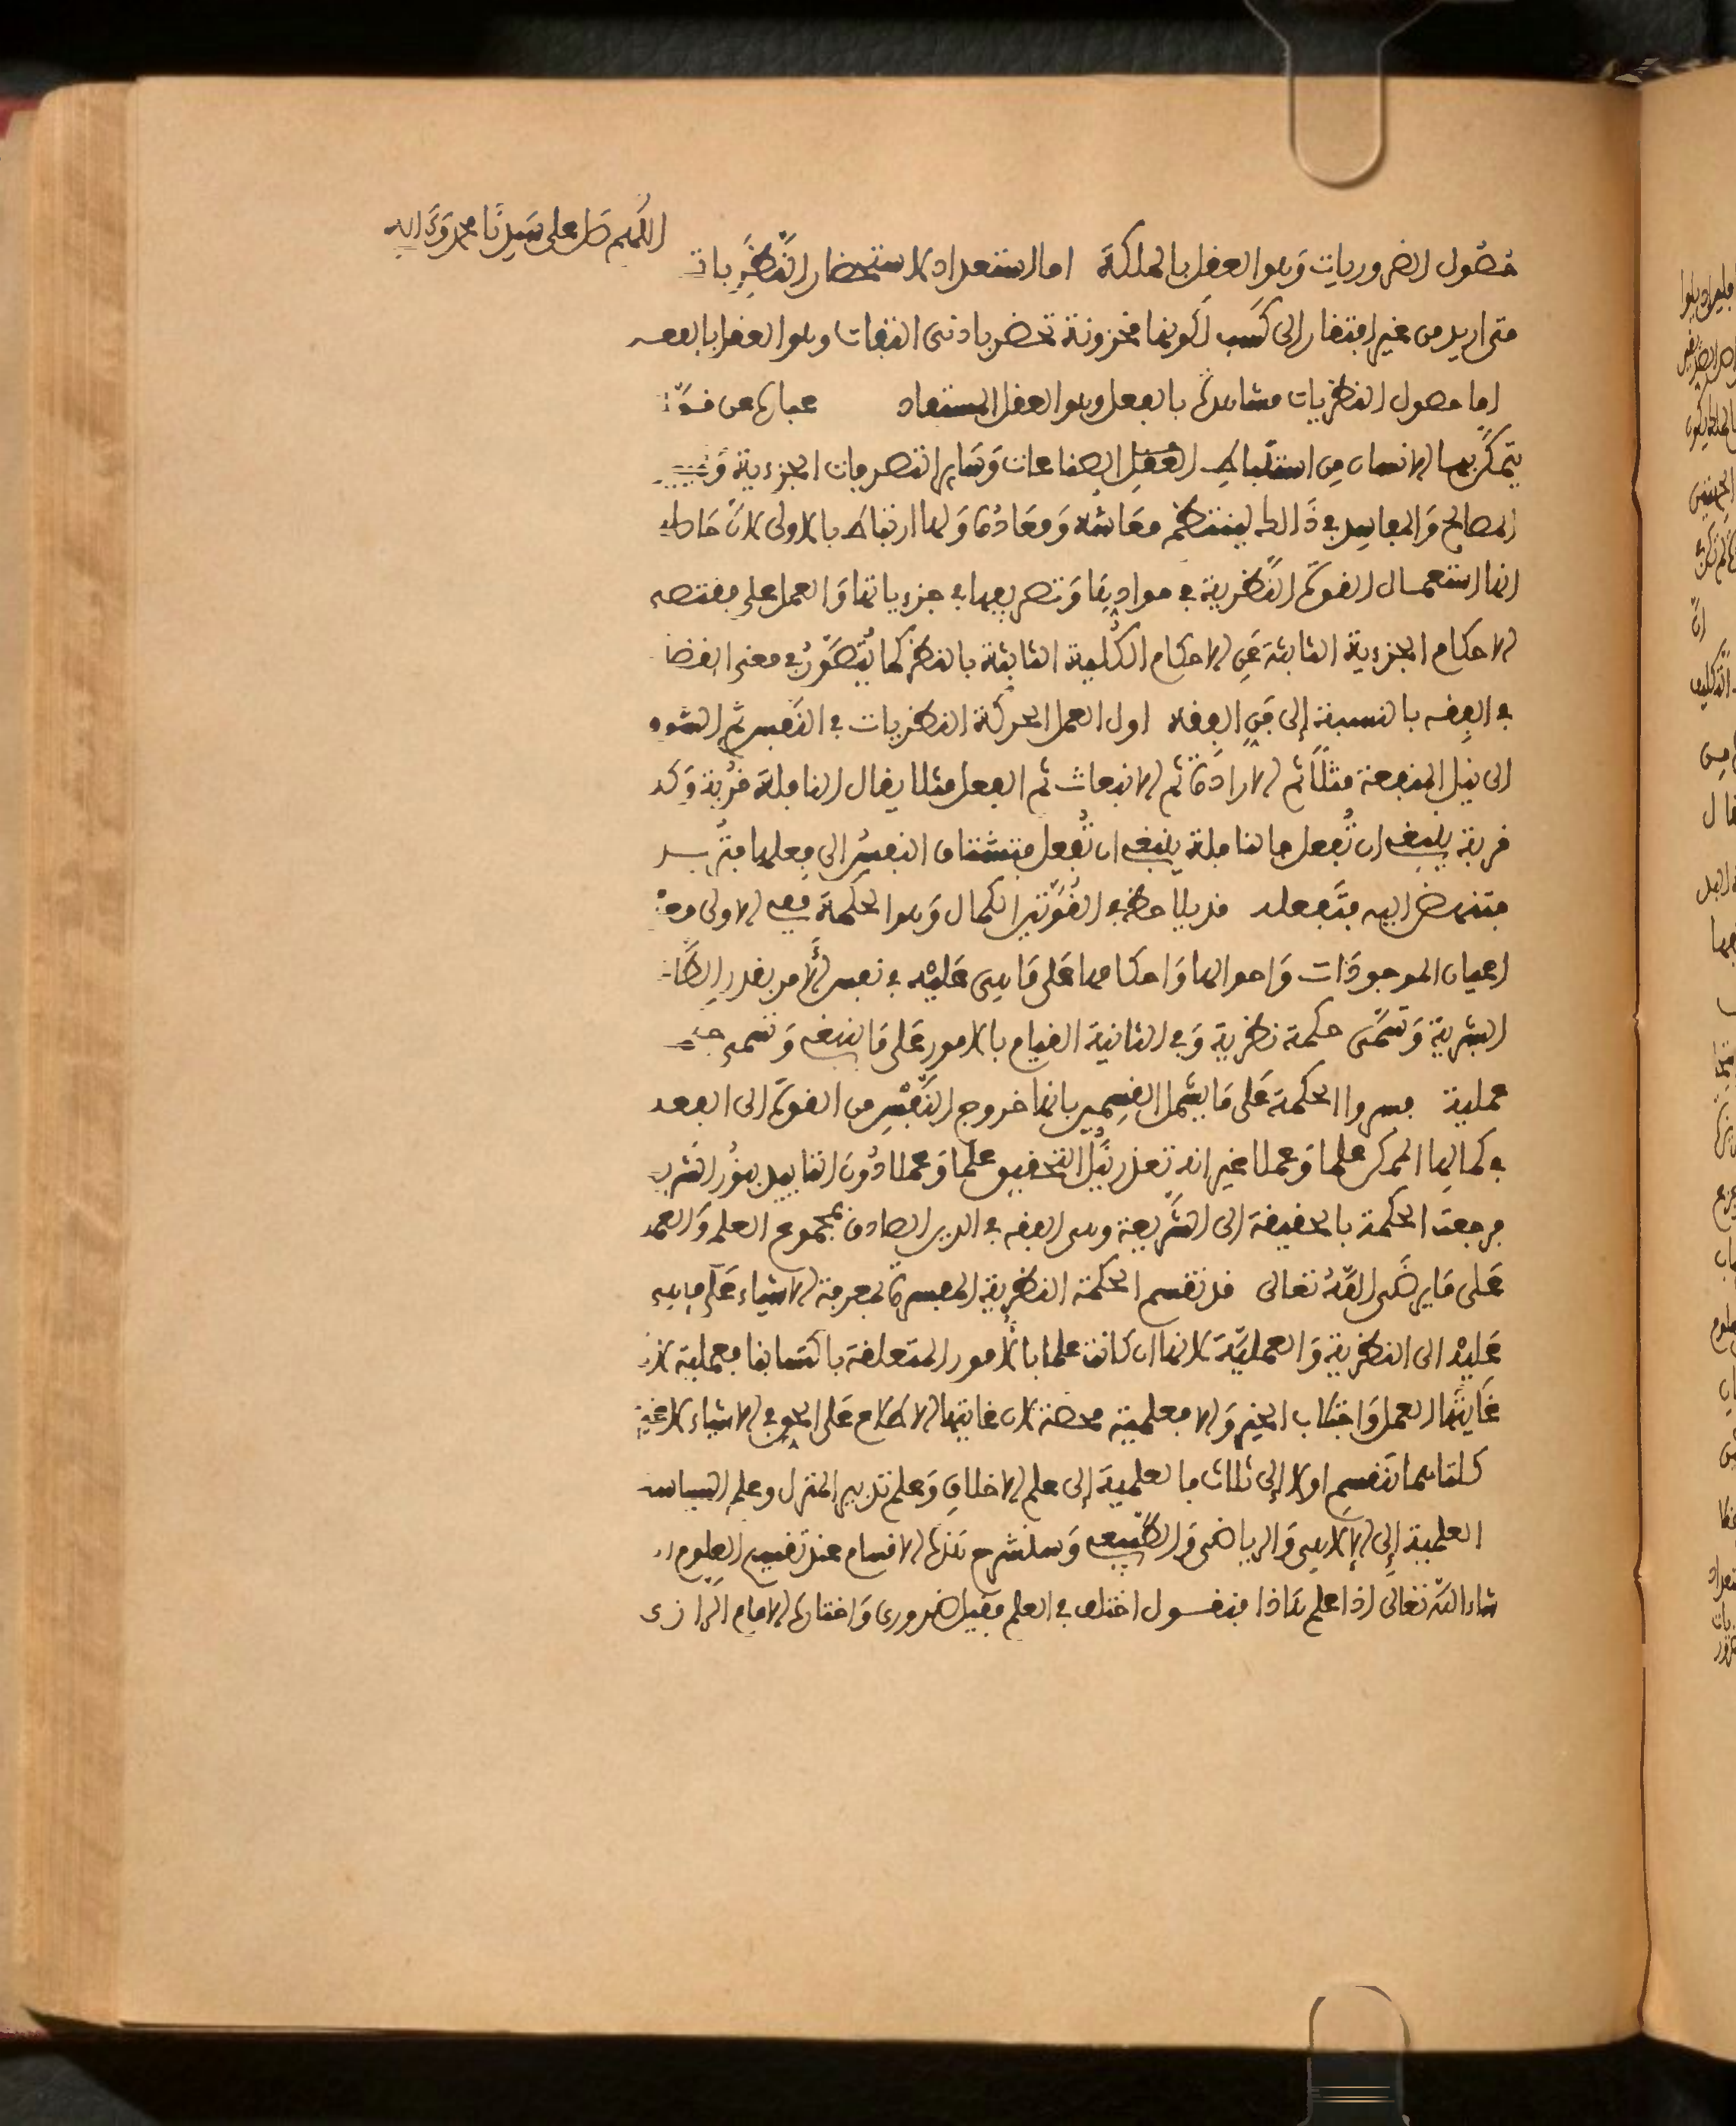 اللهم صل على سيدنا محمد وءاله
حصول الضروريات وهو العقل بالملكة اما الاستعداد لاستحضار النظريات
متى اريد من غير افتقار الى كسب لكونها مخزونة تحضر بادنى التفات وهو العقل بالفعل
اما حصول النظريات مشاهدة بالفعل وهو العقل المستفاد عبارة عن قوة
يتمكن بها الانسان من استنباط العقل الصناعات وساير التصرفات الجزءية
المصالح والمفاسد في ذالك لينتظم معاشه ومعاده ولها ارتباط بالاولى لان حاصل
انها استعمال القوة النظرية في موادها وتصريفها في جزءياتها والعمل على مقتضى
الاحكام الجزءية الثابتة عن الاحكام الكلية الثابتة بالنظر كما يتصور في معنى القضا
في الفقه بالنسبة إلى فن الفقه اول العمل الحركة النظريات في النفس ثم الشوق
الى نيل المنفعة مثلا ثم الارادة ثم الانبعاث ثم الفعل مثلا يقال النافلة قربة وكل
قربة ينبغي ان تفعل فالنافلة ينبغي ان تفعل فتشتاق النفس الى فعلها فتريد
فتنهض اليه فتفعله قد يلاحظ في القوتين الكمال وهو الحكمة ففي الاولى معرفة
اعيان الموجودات واحوالها واحكامها على ما هي عليه في نفس الأمر بقدر الطاقة
البشرية وتسمى حكمة نظرية وفي الثانية القيام بالامور على ما ينبغي وتسمى حكمة
عملية فسروا الحكمة على ما يشمل القسمين بانها خروج النفس من القوة الى الفعل
في كمالها الممكن علما وعملا غير انه تعذر نيل التحقيق علما وعملا دون التاييد بنور الشرع
فرجعت الحكمة بالحقيقة الى الشريعة وهي الفقه في الدين الصادق بمجموع العلم والعمل
على ما يرضى الله تعالى قد تقسم الحكمة النظرية المفسرة بمعرفة الاشياء على ما هي
عليه الى النظرية والعملية لانها ان كانت علما بالأمور المتعلقة باكتسابنا فعملية لان
غايتها العمل واجتلاب الخير والا فعلمية محضة لان غايتها الاطلاع على الحق في الاشياء لا غير
كلتاهما تنقسم اولا إلى ثلاث فالعلمية إلى علم الاخلاق وعلم تدبير المنزل وعلم السياسة
العلمية إلى الإلاهي والرياضي والطبيعي وسنشرح هذه الاقسام عند تقسيم العلوم ان
شاء الله تعالى اذا علم هاذا فنقول اختلف في العلم فقيل ضروري واختاره الامام الرازي